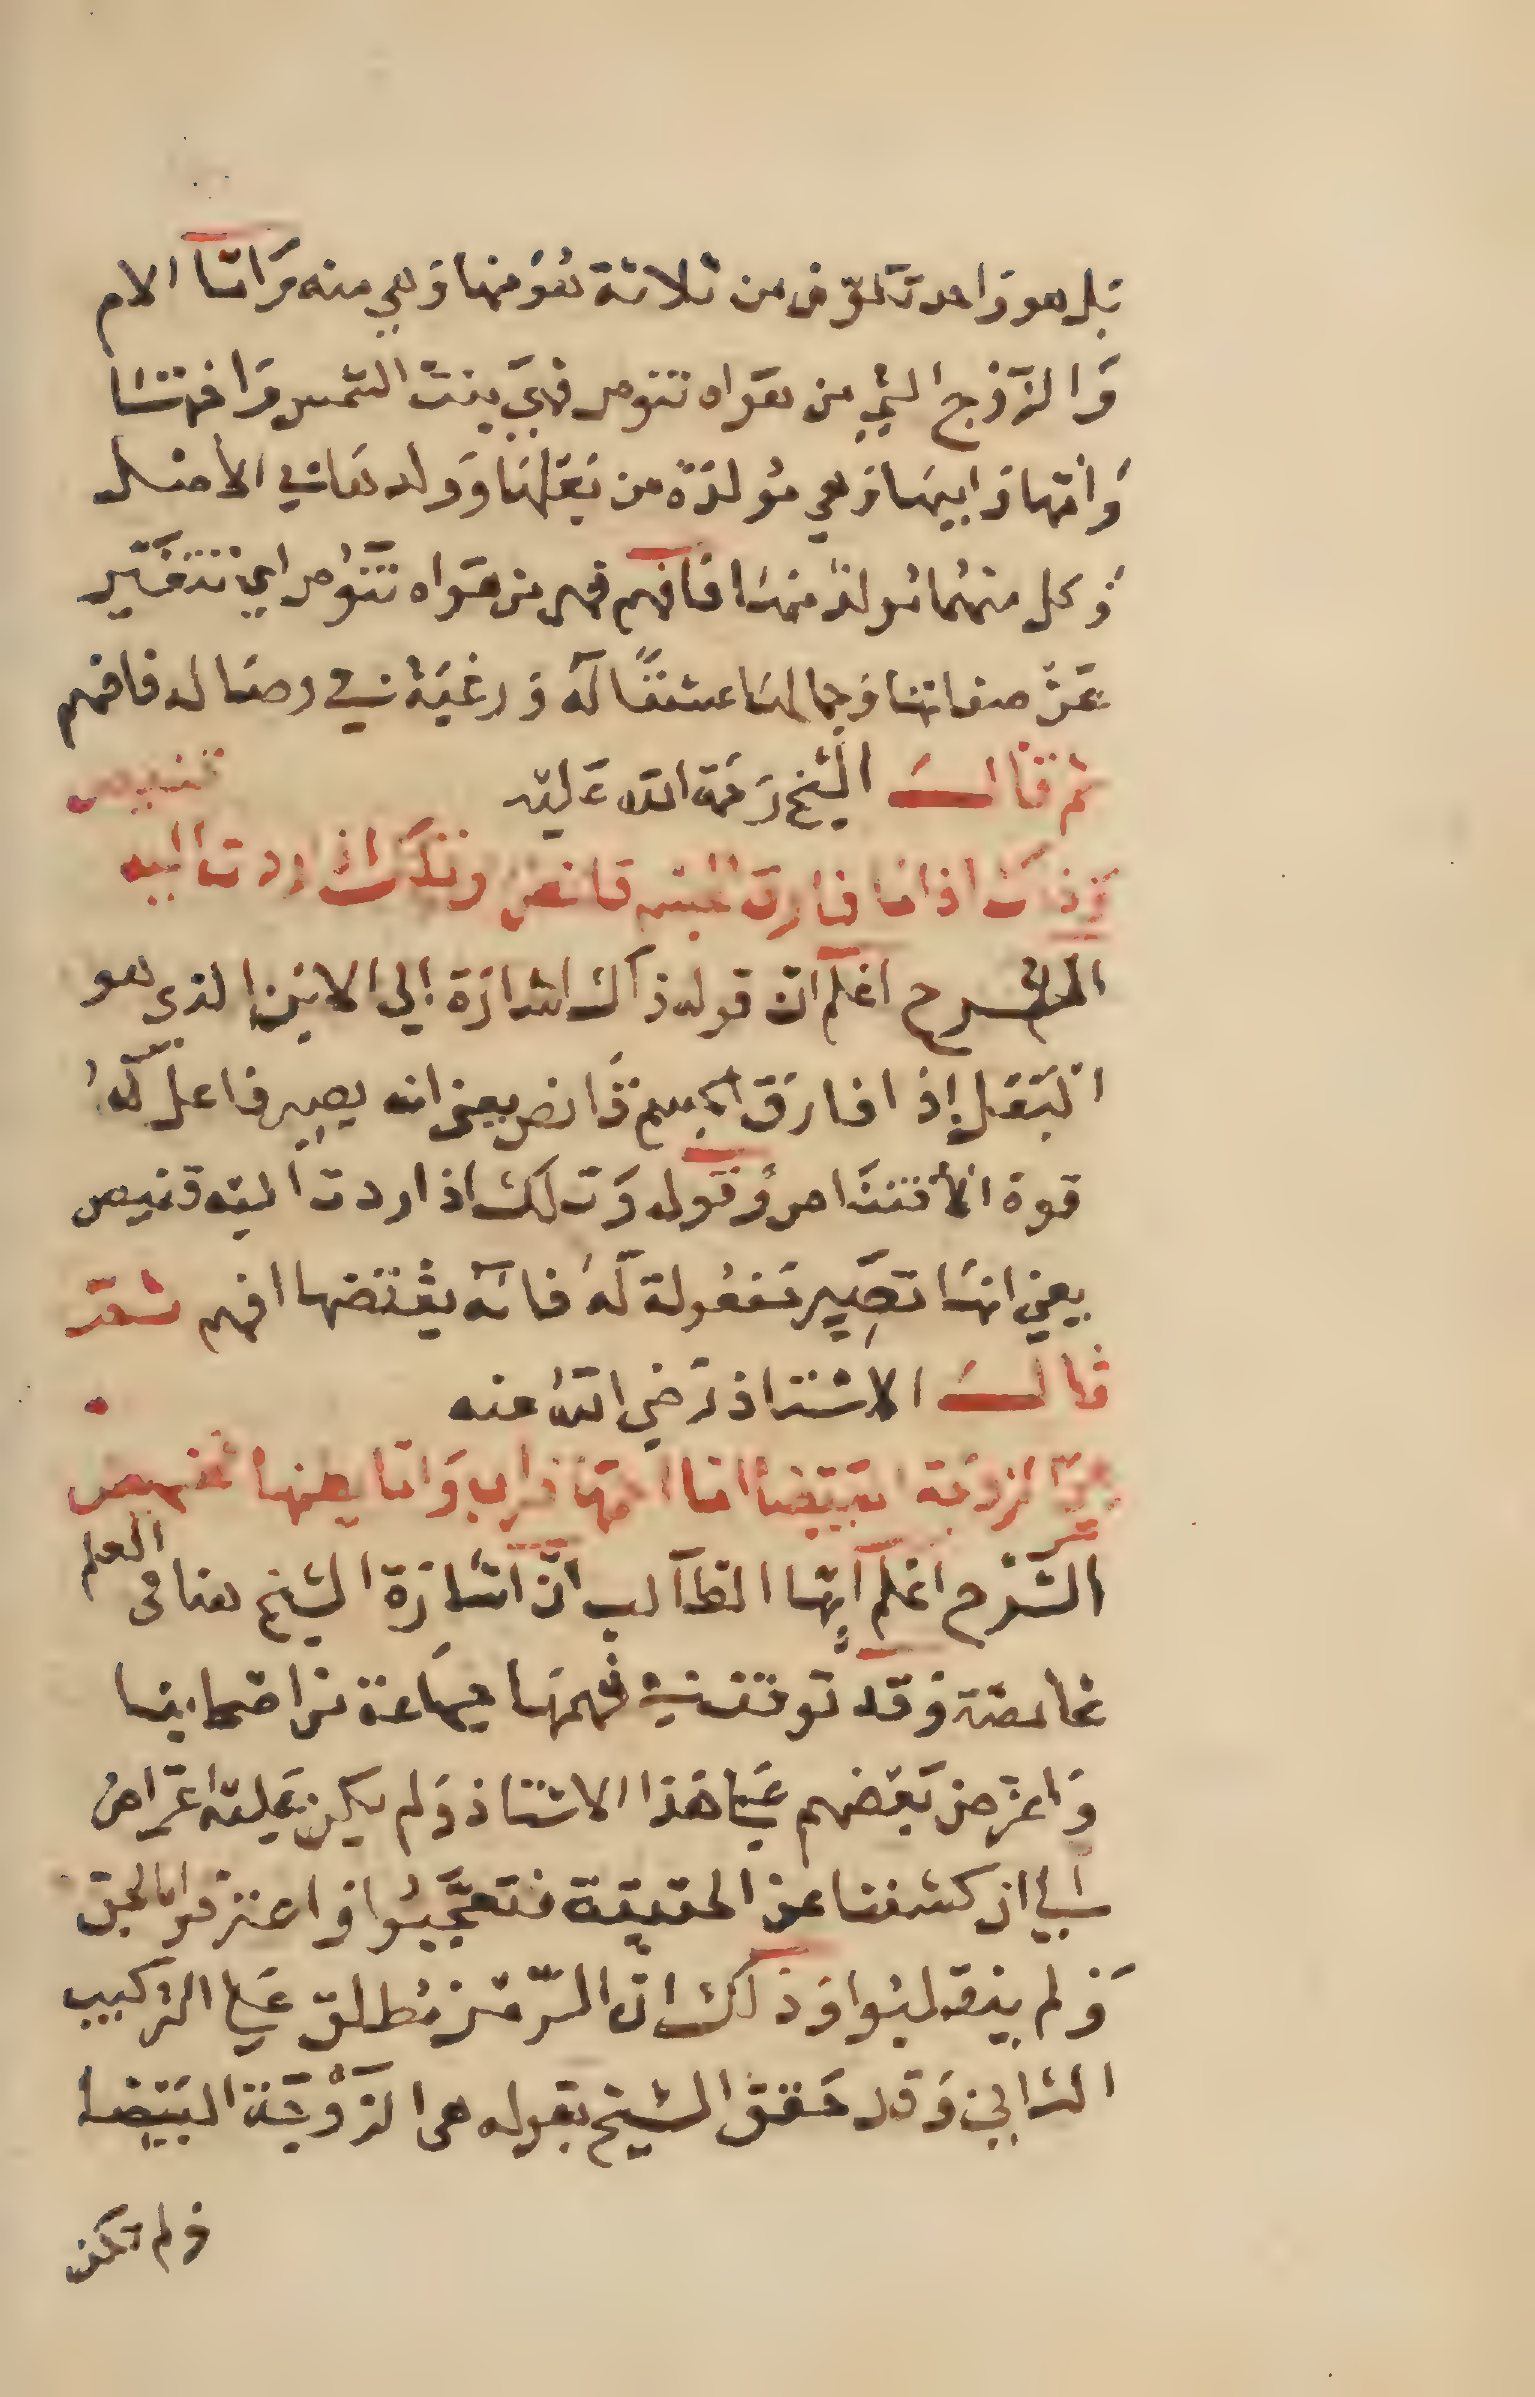 بل هو واحد تكوّن من ثلاثة هو منها وهي منه وَامّا الام
وَالزَوْج التي من هواه تنوص فهي بنت الشمس وَاختها
وَامّها وَابيها وهي مولدَة من بَعْلهَا وَولدها في الاصل
وكل منهما مولد منها فافهم فهي من هواه تنوص اي تتغير
عَنْ صفاتها وَجمالها عشقًا لَه وَرغبَة في وصاله فافهم
ثم قالَ الشيخ رَحمة الله عَليه
وَذاك اذا ما فارق الجسم قانص وتلك اذا اردت اليه قنيص
الشرح اعْلم انّ قوله ذاك اشارَة الي الابن الذي هو
البَعْل اذا فارَق الجسم قانص يعني انه يصير فاعل لَهُ
قوة الاقتناص وقوله وَتلك اذا اردت اليه قنيص
يعني انهَا تصَير مَفعُولة لَهُ فانه يقتنصها افهم
قالَ الاستاذ رَضي اللهُ عنه
هي الزوجَة البَيْضا اما امها فراب وَاما بعلها
الشَرْح اعْلم ايّها الطالب انّ اشارَة الشيخ هنا في العلم
غامضة وَقد توقف في فهمهَا جماعَة من اصحابنا
وَاعترض بَعْضهم عَلي هَذا الاستاذ وَلم يكن عَليه اعتراض
الي ان كشفنا عن الحقيقة فتعجّبُوا وَاعترفوا بالحق
وَلم ينقلبُوا وَذلك انّ الرّمْز مُطلق عَلي التركيب
الثاني وَقد حَقق الشيخ بقوله هي الزَوْجَة البَيْضا
وَلم تكن